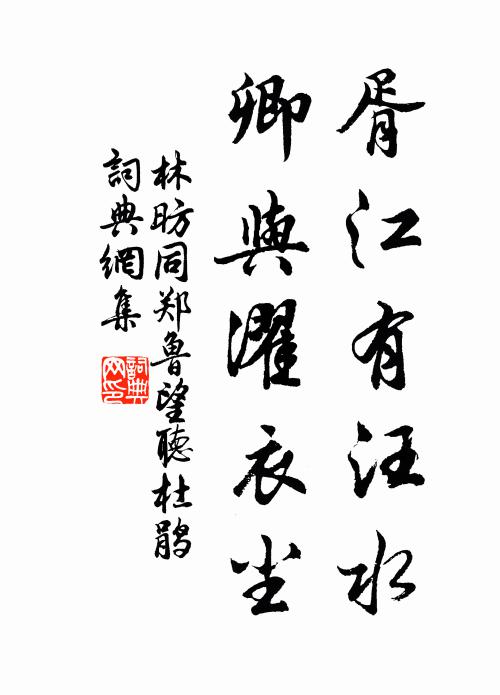 胥江有汪水
卿與濯衣尘
林昉同郑魯望聽杜鹃
詞典網集
詞典网印